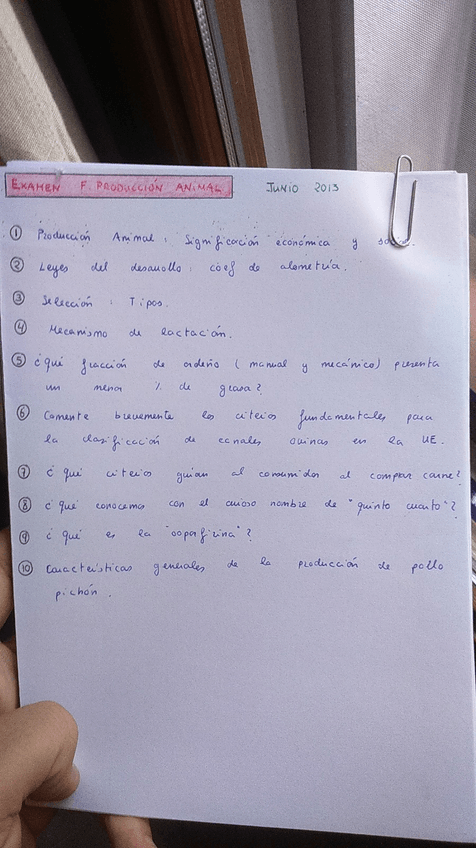 EXAMEN F. PRODUCCIÓN ANIMAL JUNIO 2013
① Producción Animal: Significación económica y social.
② Leyes del desarrollo: coef de alometría.
③ Selección: Tipos.
④ Mecanismo de lactación.
⑤ ¿qué fracción de ordeño (manual y mecánico) presenta
un menor % de grasa?
⑥ Comente brevemente los criterios fundamentales para
la clasificación de canales ovinas en la UE.
⑦ ¿qué criterios guían al consumidor al comprar carne?
⑧ ¿qué conocemos con el curioso nombre de "quinto cuarto"?
⑨ ¿qué es la "ooporfirina"?
⑩ Características generales de la producción de pollo
pichón.